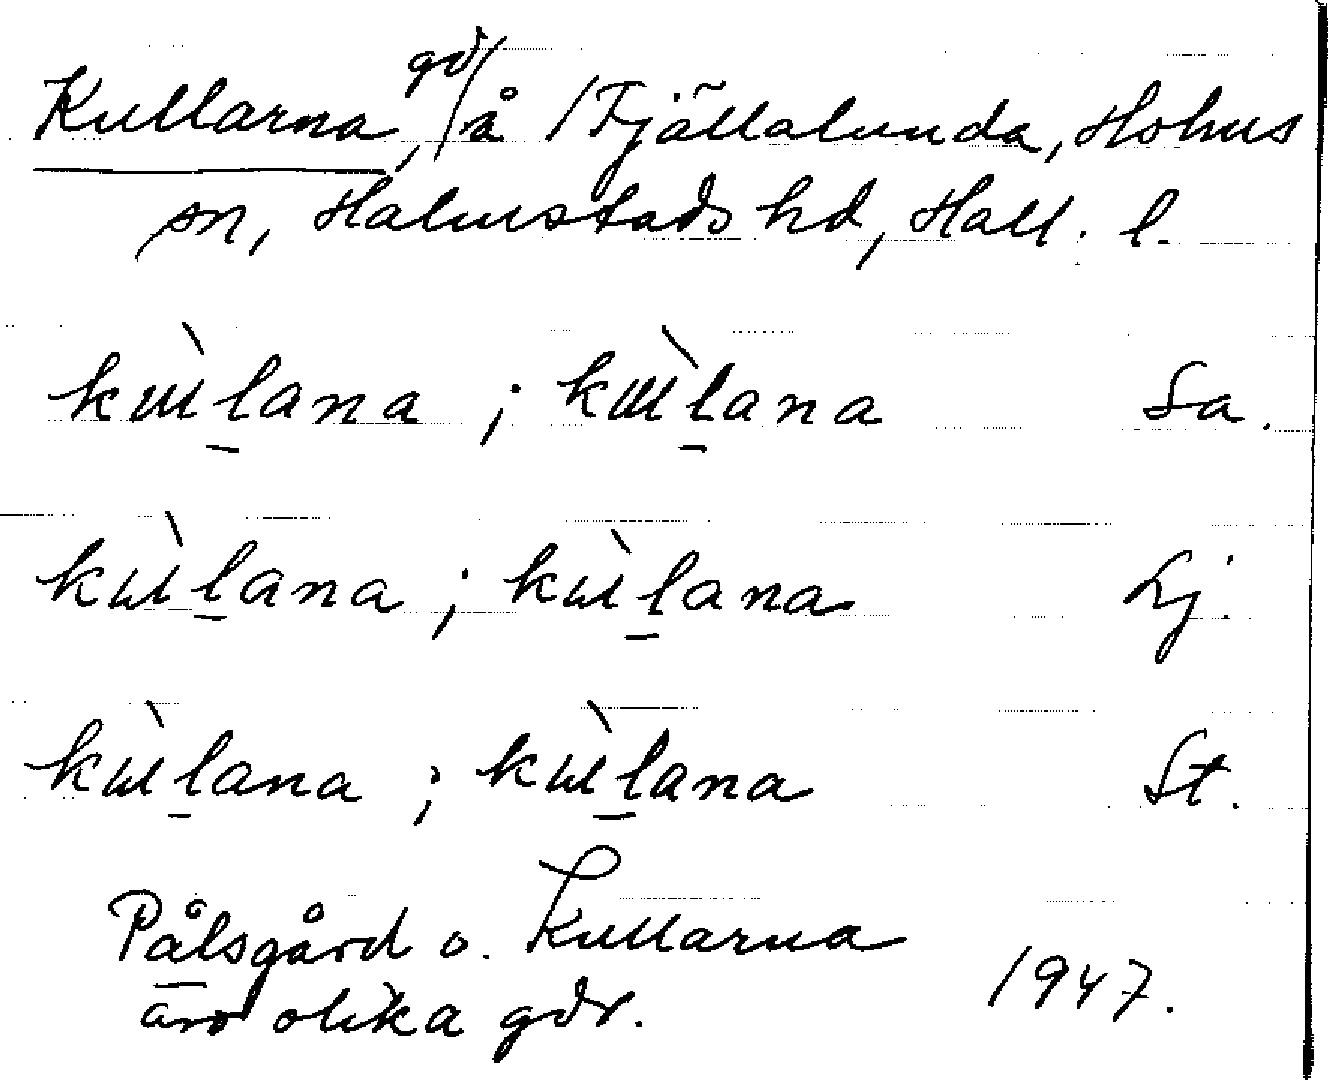 Kullarna, gd/ å 1 Fjällalunda, Hohus
sn, Halmstads hd, Hall. l.
kɯ̀l̲ana ; kɯ̀l̲ana Sa.
kɯ̀l̲ana ; kɯ̀l̲ana Lj.
kɯ̀l̲ana ; kɯ̀l̲ana St.
Pålsgård o. Kullarna
äro olika gdr. 1947.